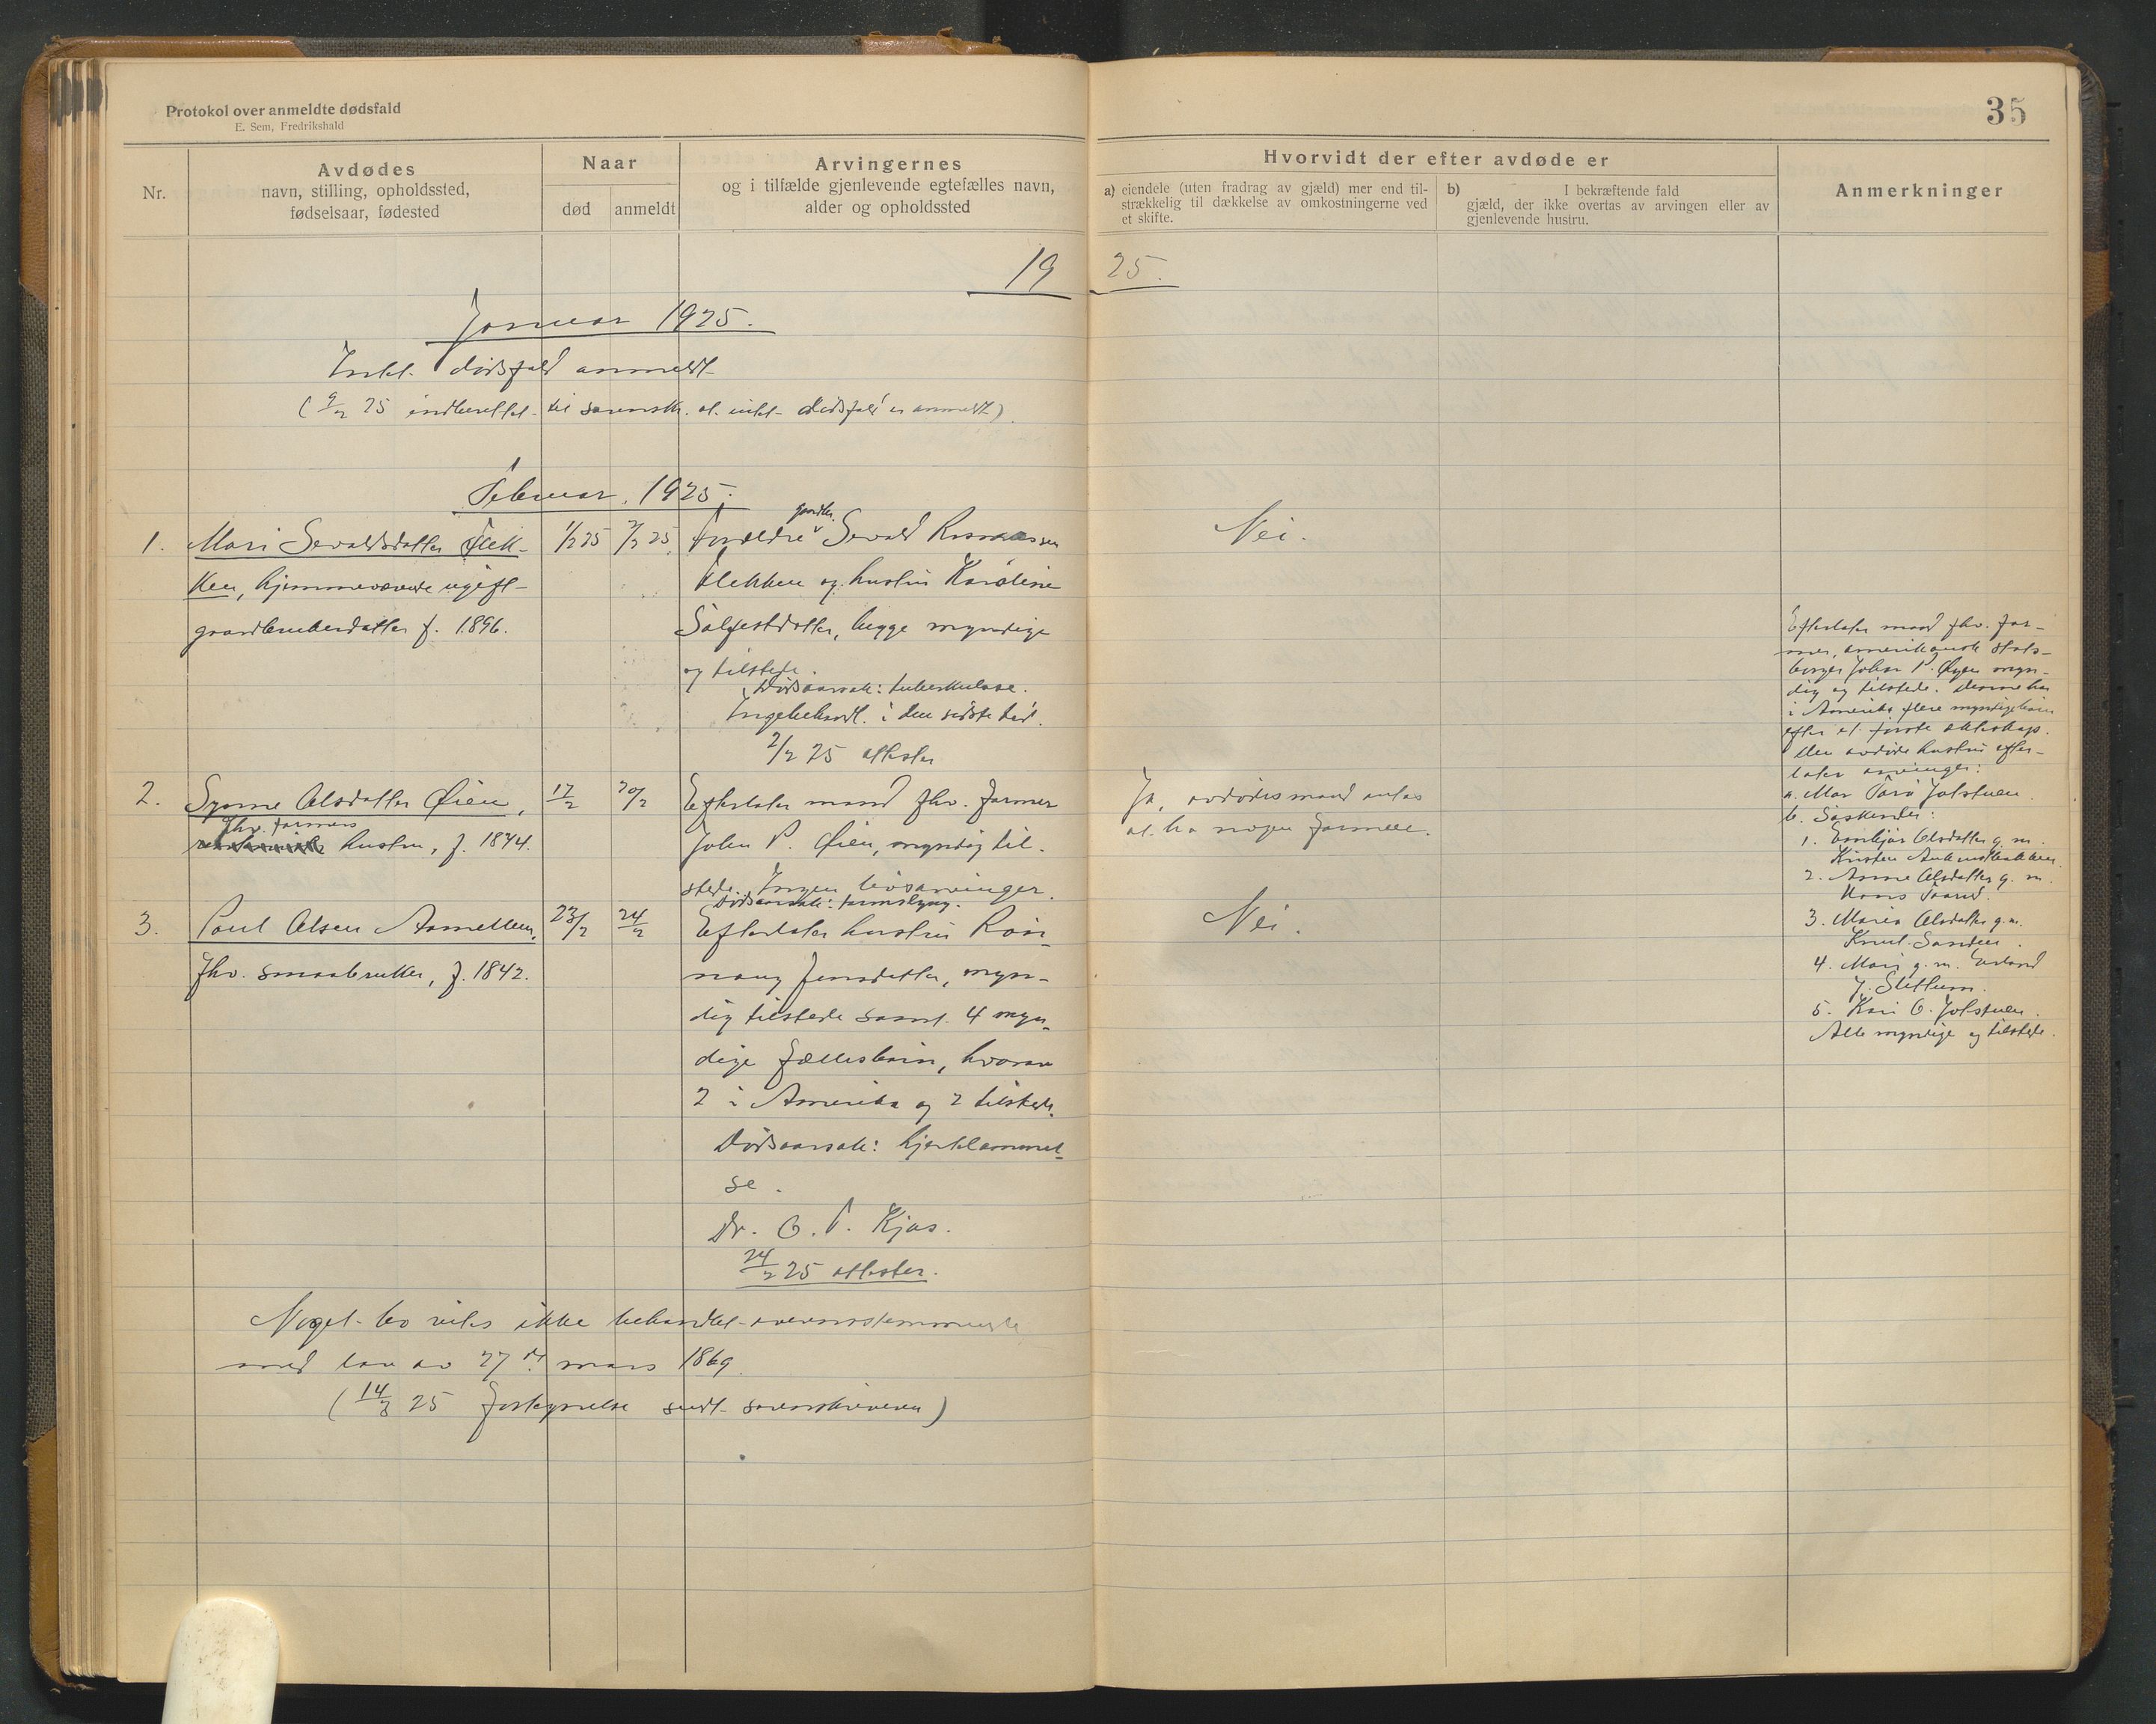 Protokol over anmeldte dødsfald
E. Sem, Fredrikshald
35
Nr.
Avdødes
navn, stilling, opholdssted,
fødselsaar, fødested
Naar
død
anmeldt
Arvingernes
og i tilfælde gjenlevende egtefælles navn,
alder og opholdssted
Hvorvidt der efter avdøde er
a) eiendele (uten fradrag av gjæld) mer end til-
strækkelig til dækkelse av omkostningerne ved
et skifte.
b) I bekræftende fald
gjæld, der ikke overtas av arvingen eller av
gjenlevende hustru.
Anmerkninger
19 25.
Januar 1925.
Intet dødsfald anmeldt
(9/2 25 indberettet til sorenskr. at intet dødsfald er anmeldt)
Februar. 1925.
1. Mari Sevaldsdatter Flek-
ken, hjemmeværende ugift
gaardbrukerdatter f. 1896.
1/2 25
2/2 25
Forældre gaardbr. Sevald Rasmussen
Flekken og hustru Karoline
Salfestdatter, begge myndige
og tilstede.
Dødsaarsak: tuberkulose.
Ingen behandl. i den sidste tid.
2/2 25 attester
Nei.
2. Synne Olsdatter Øien,
fhv. farmers
hustru, f. 1844.
17/2
20/2
Efterlater mand fhv. farmer
John P. Øien, myndig til-
stede. Ingen livsarvinger.
Dødsaarsak:
Ja, avdødes mand antas
at ha nogen formue.
Efterlater mand fhv. far-
mer, amerikansk stats-
borger Johan P. Øyen myn-
dig og tilstede. Denne har
i Amerika flere myndige barn
efter et første ekteskap.
Den avdøde hustru efter-
later arvinger:
a. Mor Jolstuen
b. Søskende:
1. Olsdatter g. m.
Kristen
2. Anne Olsdatter g. m.
Hans
3. Maria Olsdatter g.m.
Knut Sanden.
4. Mari g. m. Erland
J. Slettum.
5. Kari O. Jolstuen.
Alle myndige og tilstede.
3. Paul Olsen
fhv. smaabruker, f. 1842.
23/2
24/2
Efterlater hustru Røn-
naug Jensdatter, myn-
dig tilstede samt 4 myn-
dige fællesbarn, hvorav
2 i Amerika og 2 tilstede.
Dødsaarsak: hjertelammel-
se.
Dr. O. P. Kjos.
24/2 25 attester.
Nei.
Noget bo vites ikke behandlet overensstemmende
med lov av 27de mars 1869.
(14/3 25 fortegnelse sendt sorenskriveren)